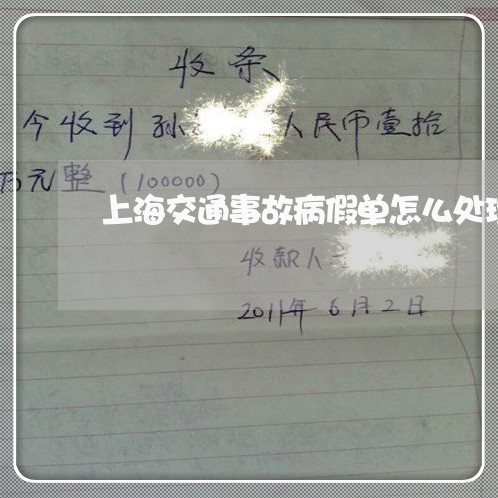 收条
今收到孙 人民币壹拾
万元整(100000)
上海交通事故病假单怎么处理
收款人
2011年6月2日